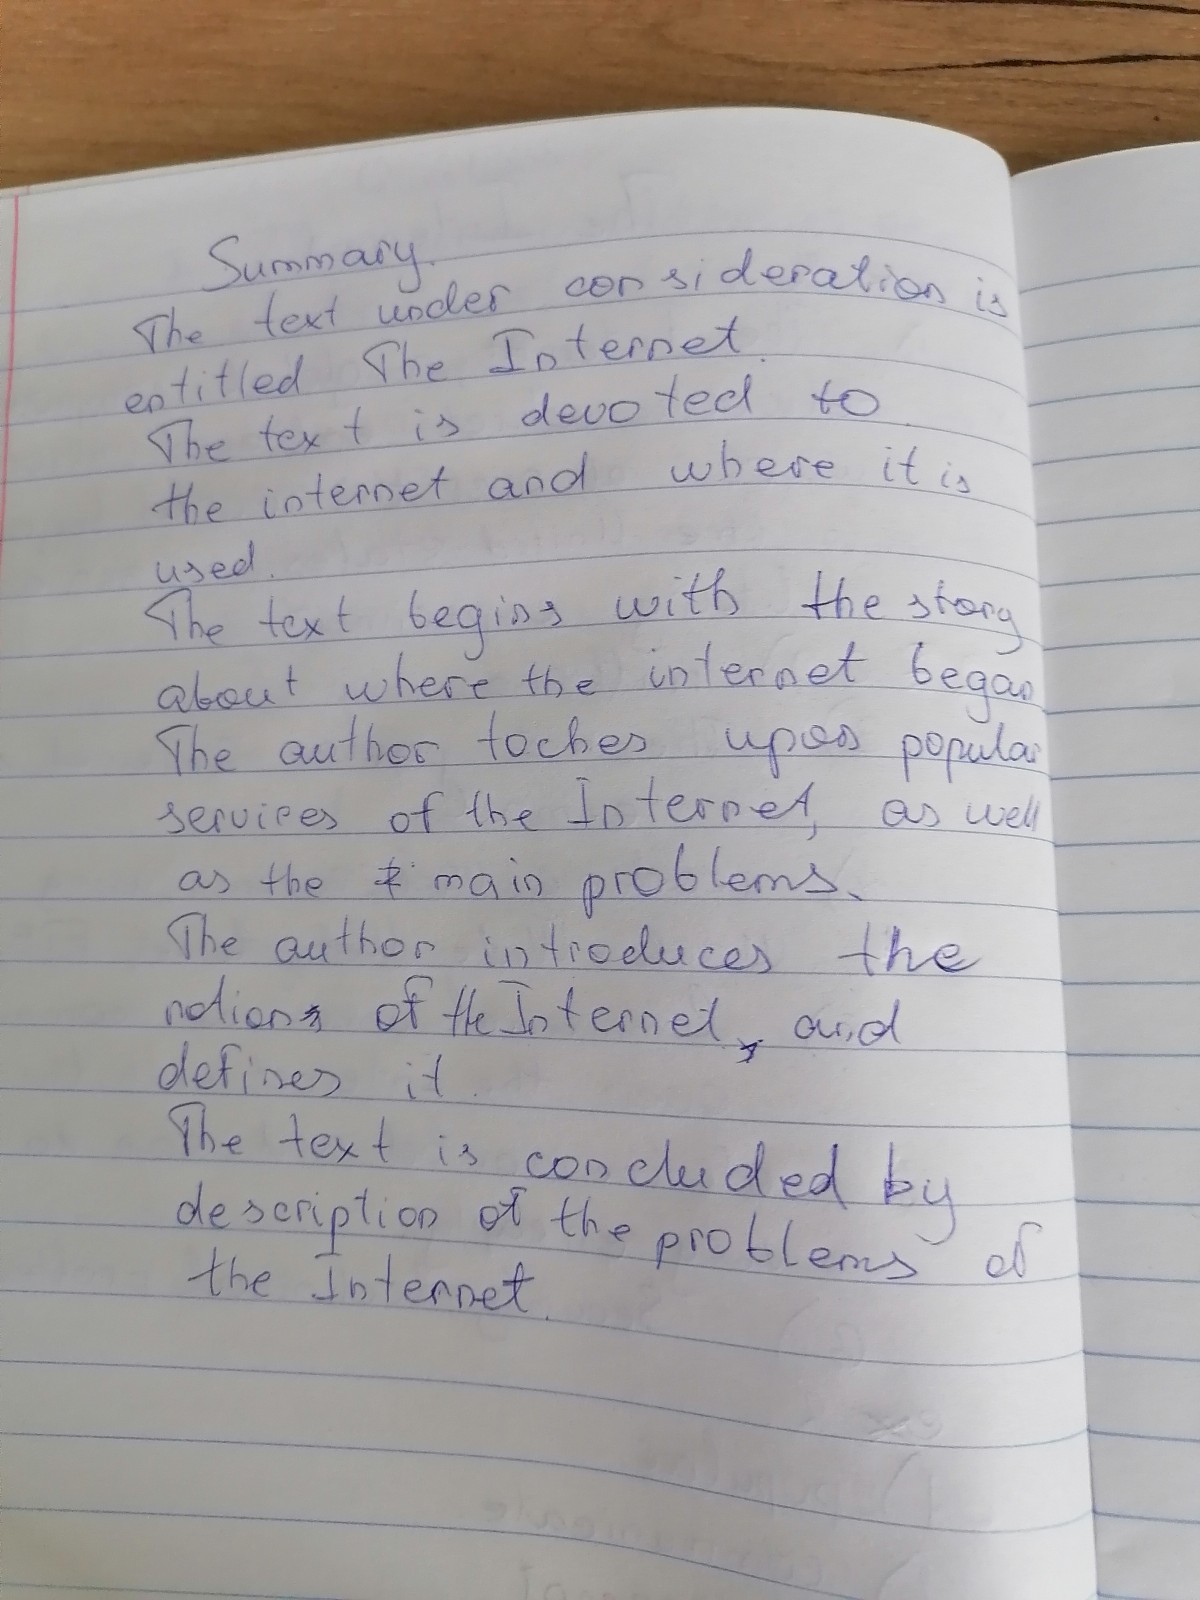 Summary.
The text under consideration is
entitled The Internet.
The text is devoted to
the internet and where it is
used.
The text begins with the story
about where the internet began
The author toches upon popular
services of the Internet, as well
as the main problems.
The author introduces the
notions of the Internet, and
defines it.
The text is concluded by
description of the problems of
the Internet.